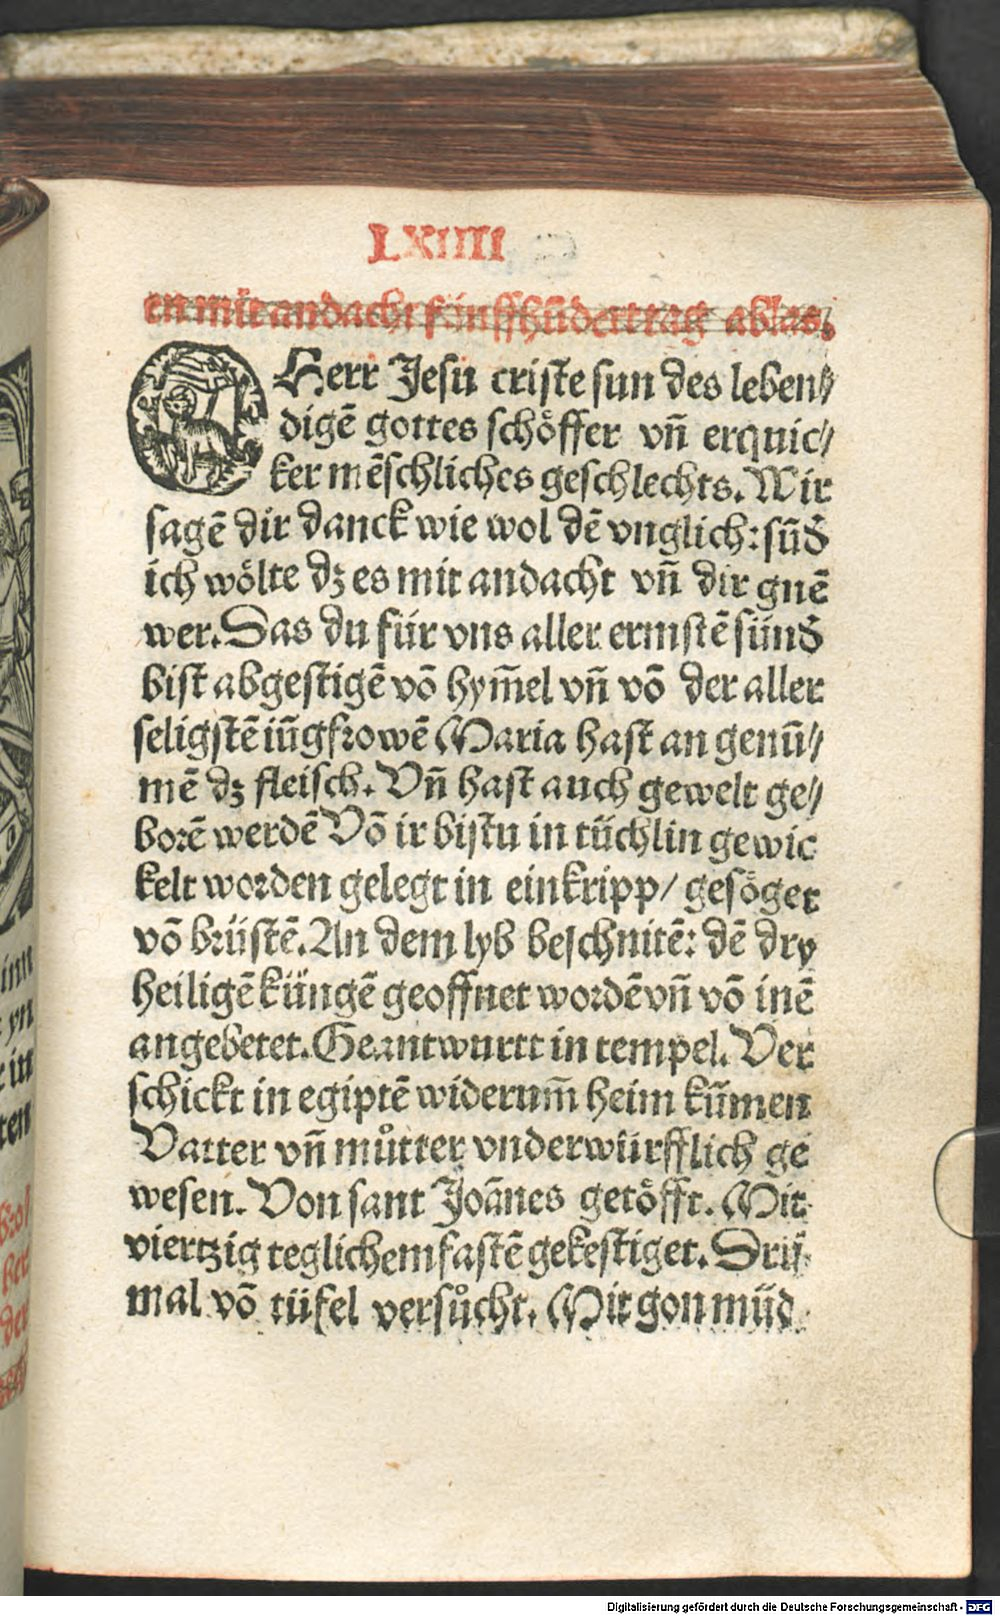 LXIIII
en mit andacht fünffhūdert tag ablas.
O Herr Jesu criste sun des leben⸗
digē gottes schöffer vn̄ erquic⸗
ker mēschliches geschlechts. Wir
sagē dir danck wie wol dē vnglich: sūd
ich wölte dz es mit andacht vn̄ dir gnē
wer. Das du für vns aller ermstē sünd
bist abgestigē vō hym̄el vn̄ vō der aller
seligstē iūgfrowē Maria hast an genū⸗
mē dz fleisch. Vn̄ hast auch gewelt ge⸗
borē werdē Vō ir bistu in tüchlin gewic
kelt worden gelegt in ein kripp/ gesöget
vō brüstē. An dem lyb beschnitē: dē dry
heiligē küngē geoffnet wordē vn̄ vō inē
angebetet. Geantwurtt in tempel. Ver
schickt in egiptē widerum̄ heim kūmen
Vatter vn̄ můtter vnderwürfflich ge
wesen. Von sant Joānes getöfft. Mit
viertzig teglichem fastē gekestiget. Drü
mal vō tüfel versůcht. Mit gon müd
inn
yn
in
ten
der
Digitalisierung gefördert durch die Deutsche Forschungsgemeinschaft - DFG